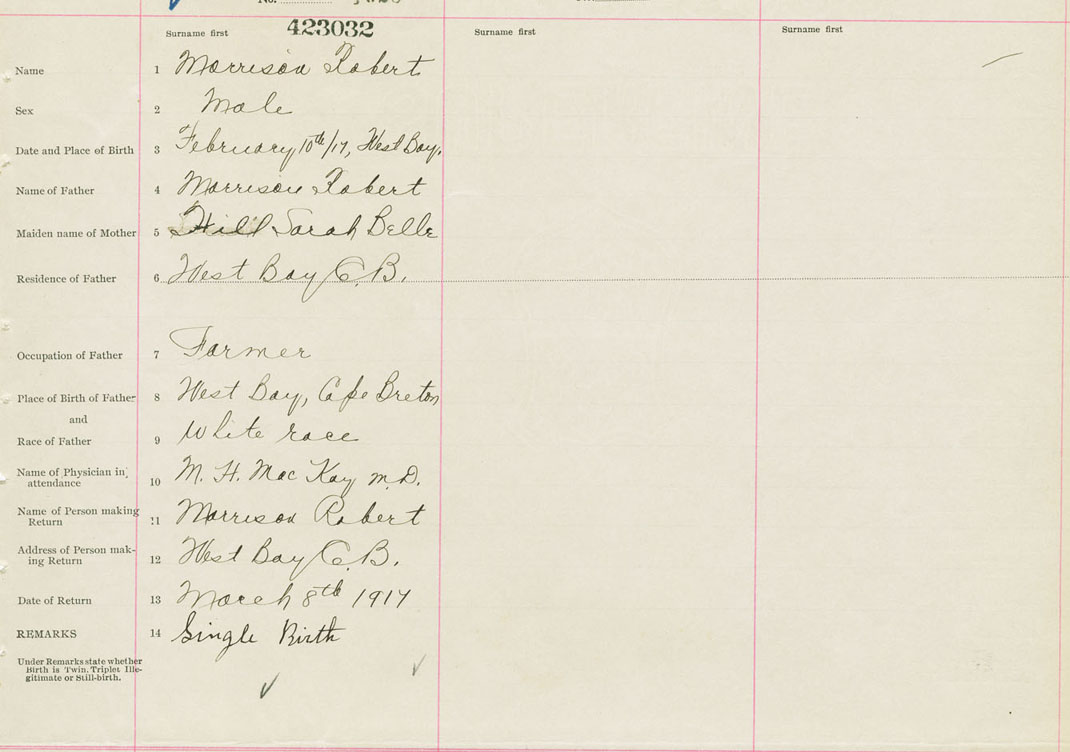 No.
Surname first
423032
Surname first
Surname first
Name 1 Morrison Robert
Sex 2 Male
Date and Place of Birth 3 February 10th/17, West Bay.
Name of Father 4 Morrison Robert
Maiden name of Mother 5 Hill Sarah Belle
Residence of Father 6 West Bay C.B.
Occupation of Father 7 Farmer
Place of Birth of Father 8 West Bay, Cape Breton
and
Race of Father 9 White race
Name of Physician in
attendance 10 M. H. MacKay M.D.
Name of Person making
Return 11 Morrison Robert
Address of Person mak-
ing Return 12 West Bay C.B.
Date of Return 13 March 8th 1917
REMARKS 14 Single Birth
Under Remarks state whether
Birth is Twin, Triplet Ille-
gitimate or Still-birth.